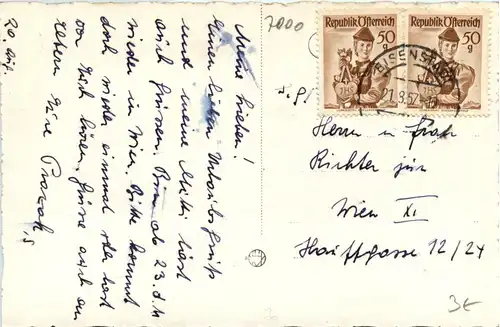 Meine Lieben!
Einen lieben Urlaubsgruß
und meine Mutti lässt
auch grüßen. Bin ab 23. d. M.
wieder in Wien. Bitte kommt
doch wieder einmal oder lasst
von Euch hören. Grüße auch an
Eltern Eure
20. Aug.
7000
Republik Österreich
50
g
Republik Österreich
50
g
EISENSTADT
21.8.57
Herrn u. Frau
Richter jun
Wien XI.
Hauffgasse 12/24
3€